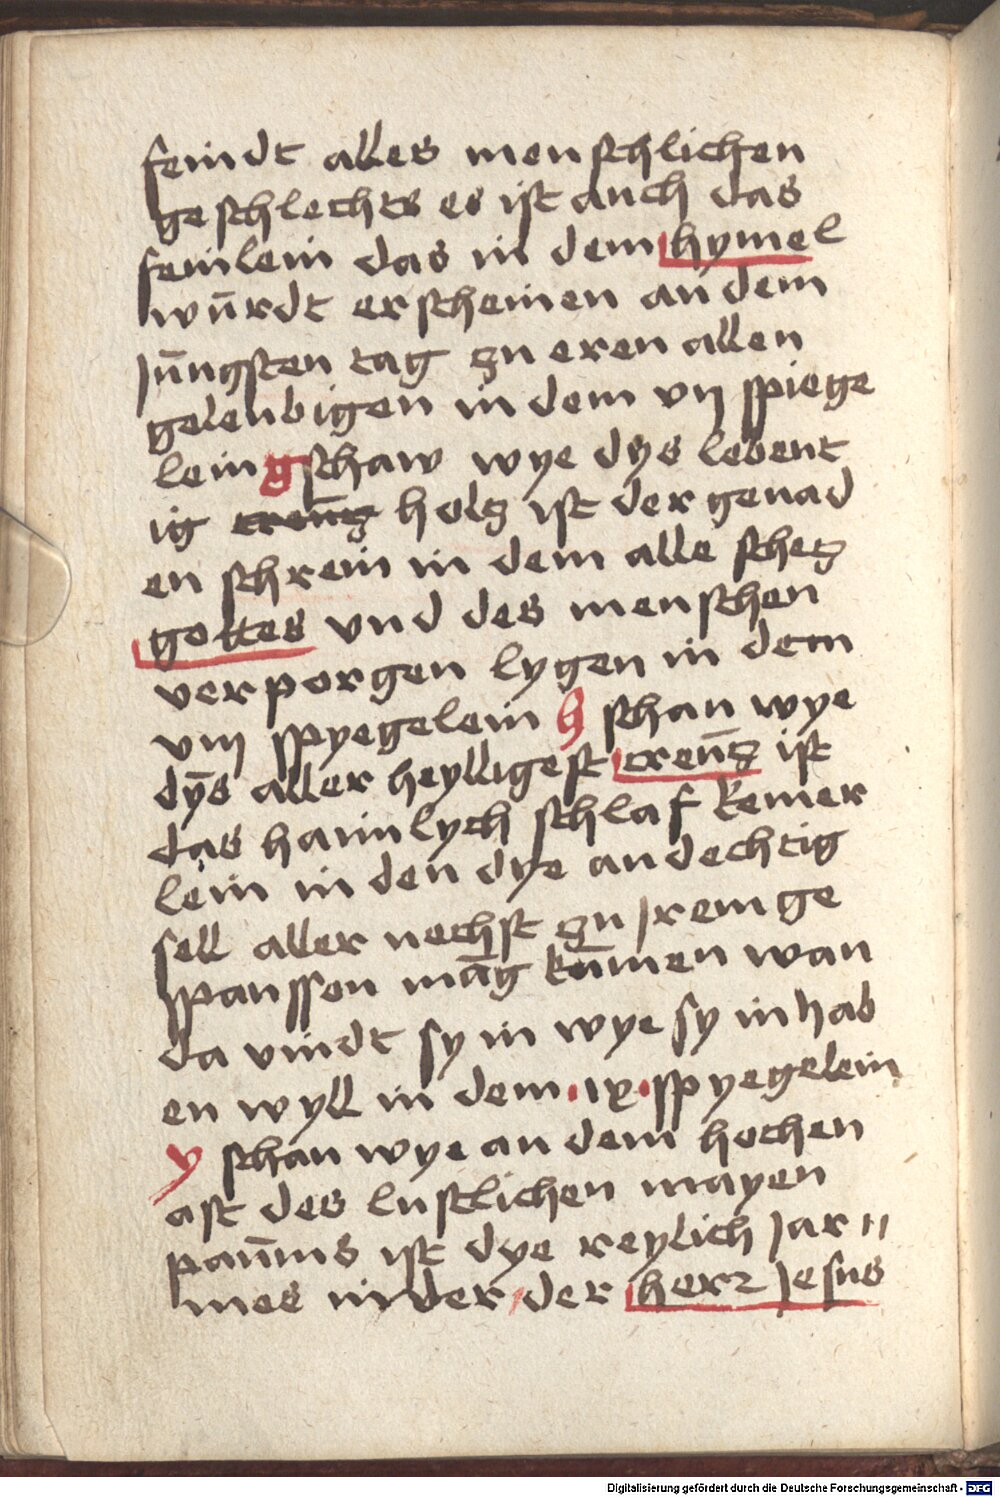 feindt alles menschlichen
geschlechts es ist auch das
feinlein das in dem hymel
wūrdt erscheinen an dem
jūngsten tag zu eren allen
geleubigen in dem vij spiege
lein g schaw wye dys lebent
ig creūtz holtz ist der genad
en schrein in dem alle schetz
gottes vnd des menschen
verporgen lygen in dem
viij spyegelein h schau wye
dȳs aller heylligest creūtz ist
das haimlych schlaf kemer
lein in den dye andechtig
sell aller nechst zu jrem ge
spanssen māg kūmen wan
da vindt sy in wye sy in hab
en wyll in dem · ix · spyegelein
y schau wye an dem hochen
ast des lustlichen mayen
paūms ist dye reylich jar //
mes in der der herr jesus
Digitalisierung gefördert durch die Deutsche Forschungsgemeinschaft - DFG